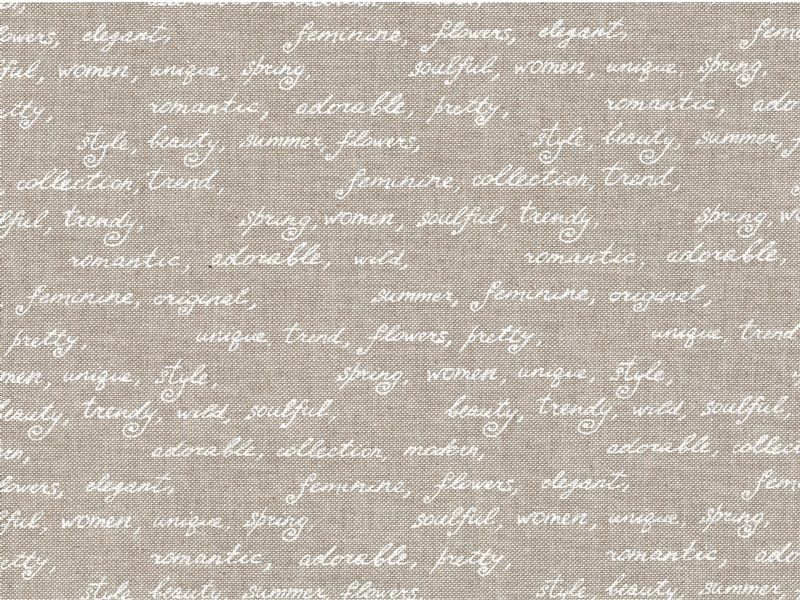 flowers, elegant, feminine, flowers, elegant,
soulful, women, unique, spring, soulful, women, unique, spring,
pretty, romantic, adorable, pretty, romantic,
style, beauty, summer, flowers, style, beauty, summer,
collection, trend, feminine, collection, trend,
soulful, trendy, spring, women, soulful, trendy, spring,
romantic, adorable, wild, romantic, adorable,
feminine, original, summer, feminine, original,
pretty, unique, trend, flowers, pretty, unique, trend
women, unique, style, spring, women, unique, style,
beauty, trendy, wild, soulful, beauty, trendy, wild, soulful,
adorable, collection, modern, adorable,
flowers, elegant, feminine, flowers, elegant,
soulful, women, unique, spring, soulful, women, unique, spring,
pretty, romantic, adorable, pretty, romantic,
style, beauty, summer, flowers, style, beauty, summer,